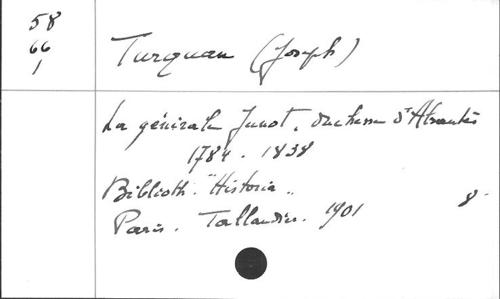 58
66
1
Turquan (Joseph)
La générale Junot, duchesse d'Abrantès
1784 - 1838
Biblioth. "Historia"
Paris. Tallandier. 1901 8°